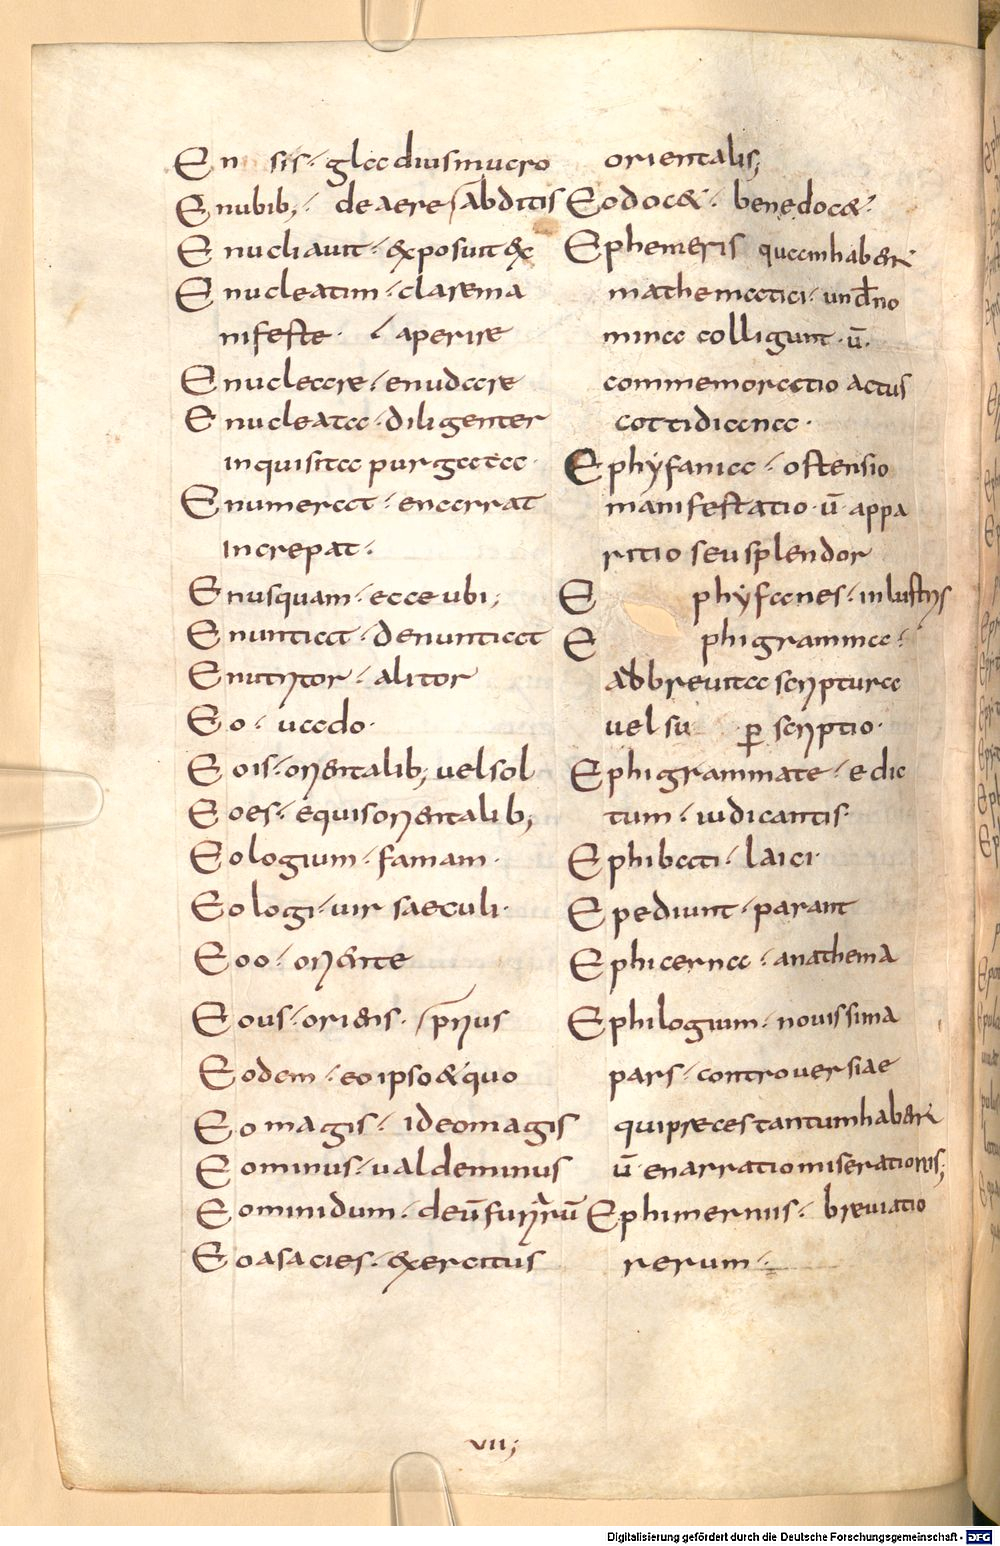 En sis · gladius mucro
Enubib; · de aere / abditis
Enucliavit · exposuit ex
Enucleatim · clare ma
nifeste · / aperire
Enucleare · enudare
Enucleata · diligenter
inquisita purgata ·
Enumerat · enarrat
increpat ·
Enusquam · ecce ubi;
Enuntiat · denuntiat
Enutritor · alitor
Eo · vado ·
Eois · orientalib; vel sol
Eoes · equis orientalib;
Eologium · famam ·
Eologi · vir saeculi ·
Eoo · oriente
Eous · oriens · / prius
Eodem · eo ipso & quo
Eo magis · ideo magis
Eo minus · valde minus
Eominidum · deū furiarū
Eoas acies · exercitus
orientalis;
Eodocet · bene docet ·
Ephemeris quam habent
mathematici · und̄ no
mina colligunt · ū ·
commemoratio actus
cottidiana ·
Ephyfania · ostensio
manifestatio · ū · appa
ritio seu splendor
E phyfanes · inlustris
E phigramma ·
abbreviata scriptura
vel su p̱ scriptio ·
Ephigrammate · edic
tum · iudicantis ·
Ephibati · laici ·
Epediunt · parant
Ephicerna · anathema
Ephilogium · novissima
pars · controversiae
qui preces tantum habent
ū · enarratio miserationis;
Ephimeriis · breviatio
rerum ·
vii;
Digitalisierung gefördert durch die Deutsche Forschungsgemeinschaft - DFG